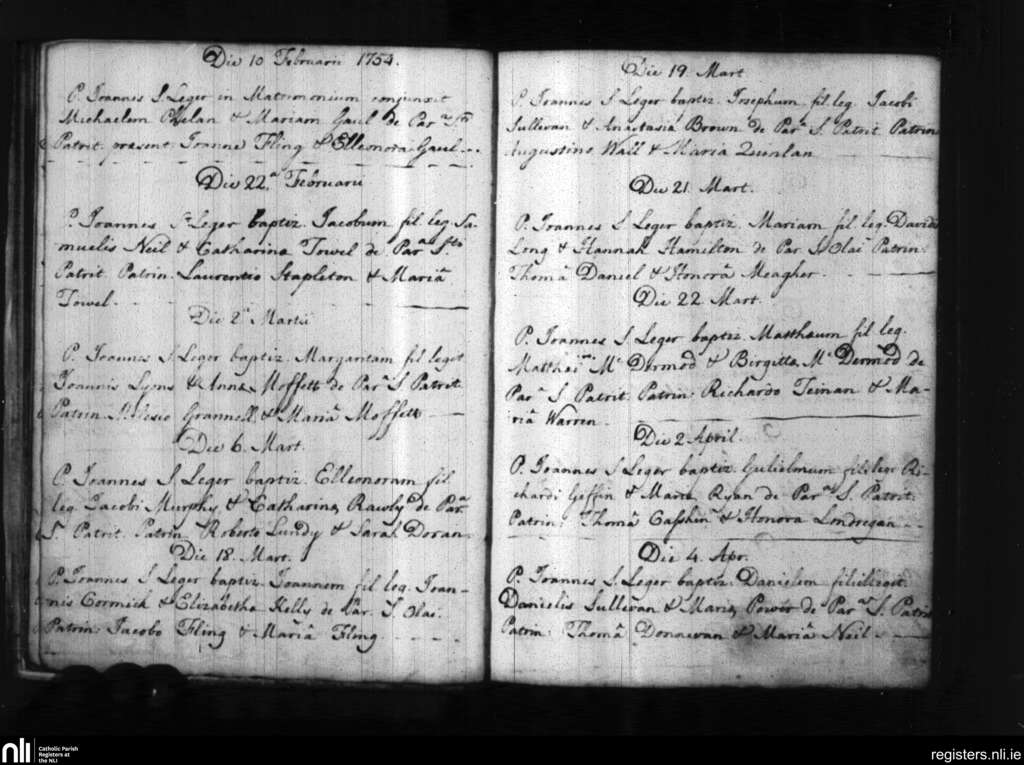 Die 10 Februarii 1754.
P. Joannes S. Leger in Matrimonium conjunxit
Michaelem Phelan & Mariam Gaul de Par. Sti
Patrit. present. Joanne Fling & Elleonora Gaul
Die 22a Februarii
P. Joannes St Leger baptiz. Jacobum fil. leg. Sa-
muelis Neil & Catharina Towel de Para Sti
Patrit. Patrin. Laurentio Stapleton & Mariâ
Towel.
Die 2a Martii
P. Joannes S. Leger baptiz. Margaritam fil. legit
Joannis Lyns & Anna Moffett de Par. S. Patrit
Patrin. Grannell & Mariâ Moffett
Die 6. Mart.
P. Joannes S. Leger baptiz. Elleonoram fil
leg. Jacobi Murphy & Catharina Rawly de Par.
S. Patrit. Patrin. Roberto Lundy & Sarah Doran
Die 18. Mart.
P. Joannes S. Leger baptiz. Joannem fil. leg. Joan-
nis Cormick & Elizabetha Kelly de Par. S. Olai.
Patrin: Jacobo Fling & Mariâ Fling
Die 19. Mart
P. Joannes S Leger baptiz. Josephum fil. leg. Jacobi
Sullivan & Anastasia Brown de Par. S. Patrit. Patrin
Augustino Wall & Maria Quinlan
Die 21. Mart.
P. Joannes S Leger baptiz. Mariam fil. leg. Davidis
Long & Hannah Hamilton de Par S. Olai Patrin:
Thomâ Daniel & Honorâ Meagher.
Die 22. Mart.
P. Joannes S. Leger baptiz. Matthaeum fil. leg.
Matthaei Mc Dermod & Birgitta Mc Dermod de
Par. S. Patrit. Patrin: Richardo Teinan & Ma-
riâ Warren.
Die 2 April.
P. Joannes S Leger baptiz. Gulielmum fil. leg. Ri-
chardi Geffin & Maria Ryan de Par. S. Patrit.
Patrin: Thomâ Casshin & Honora Londregan
Die 4. Apr.
P. Joannes S. Leger baptiz. Danielem
Danielis Sullivan & Maria Power de Par. S. Patrit
Patrin: Thomâ Donnevan & Mariâ Neil
nli
Catholic Parish
Registers at
the NLI
registers.nli.ie